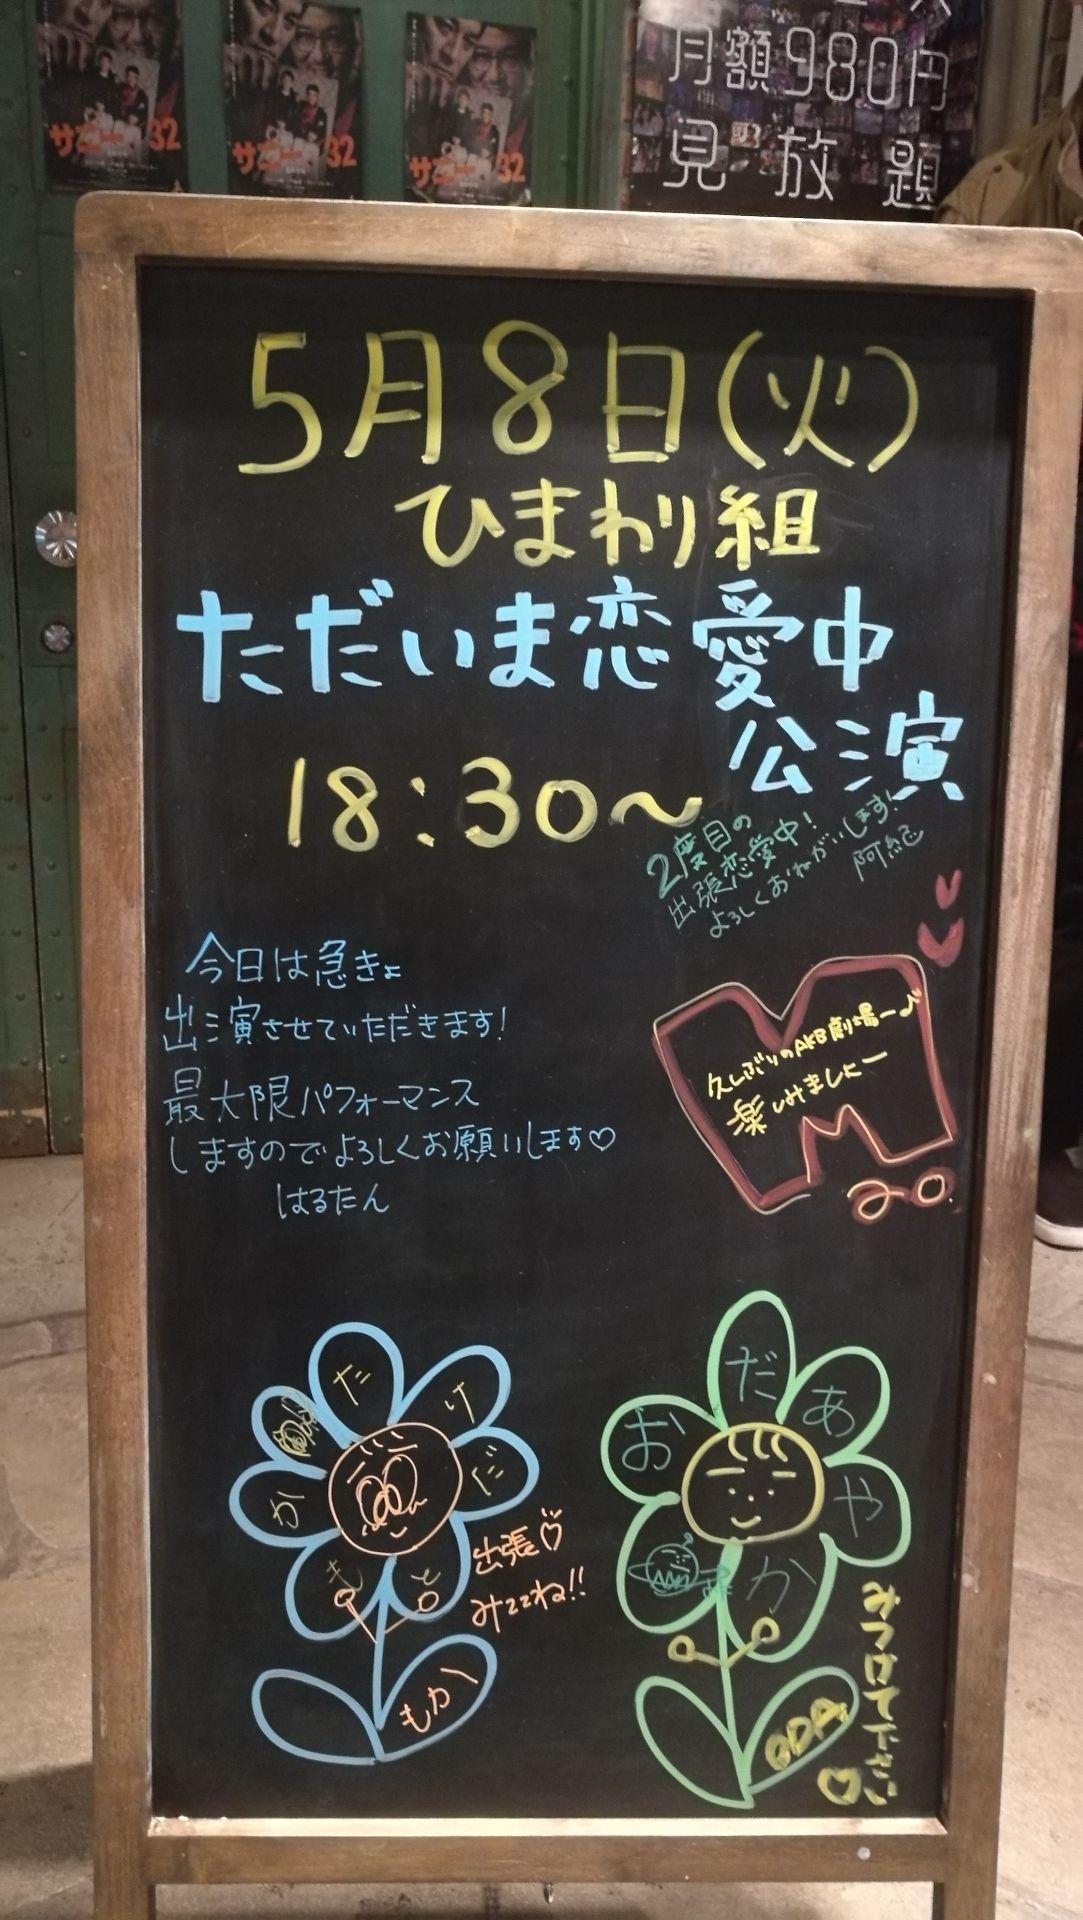 サニー32
サニー32
サニー32
月額980円
見放題
5月8日(火)
ひまわり組
ただいま恋愛中
公演
18:30〜
2度目の
出張恋愛中!
よろしくおねがいします!
阿紀
今日は急きょ
出演させていただきます!
最大限パフォーマンス
しますのでよろしくお願いします♡
はるたん
久しぶりのAKB劇場ー♪
楽しみましょー
たけだ
おだあやか
出張♡
みててね!!
もか
みつけて下さい♡
ODA